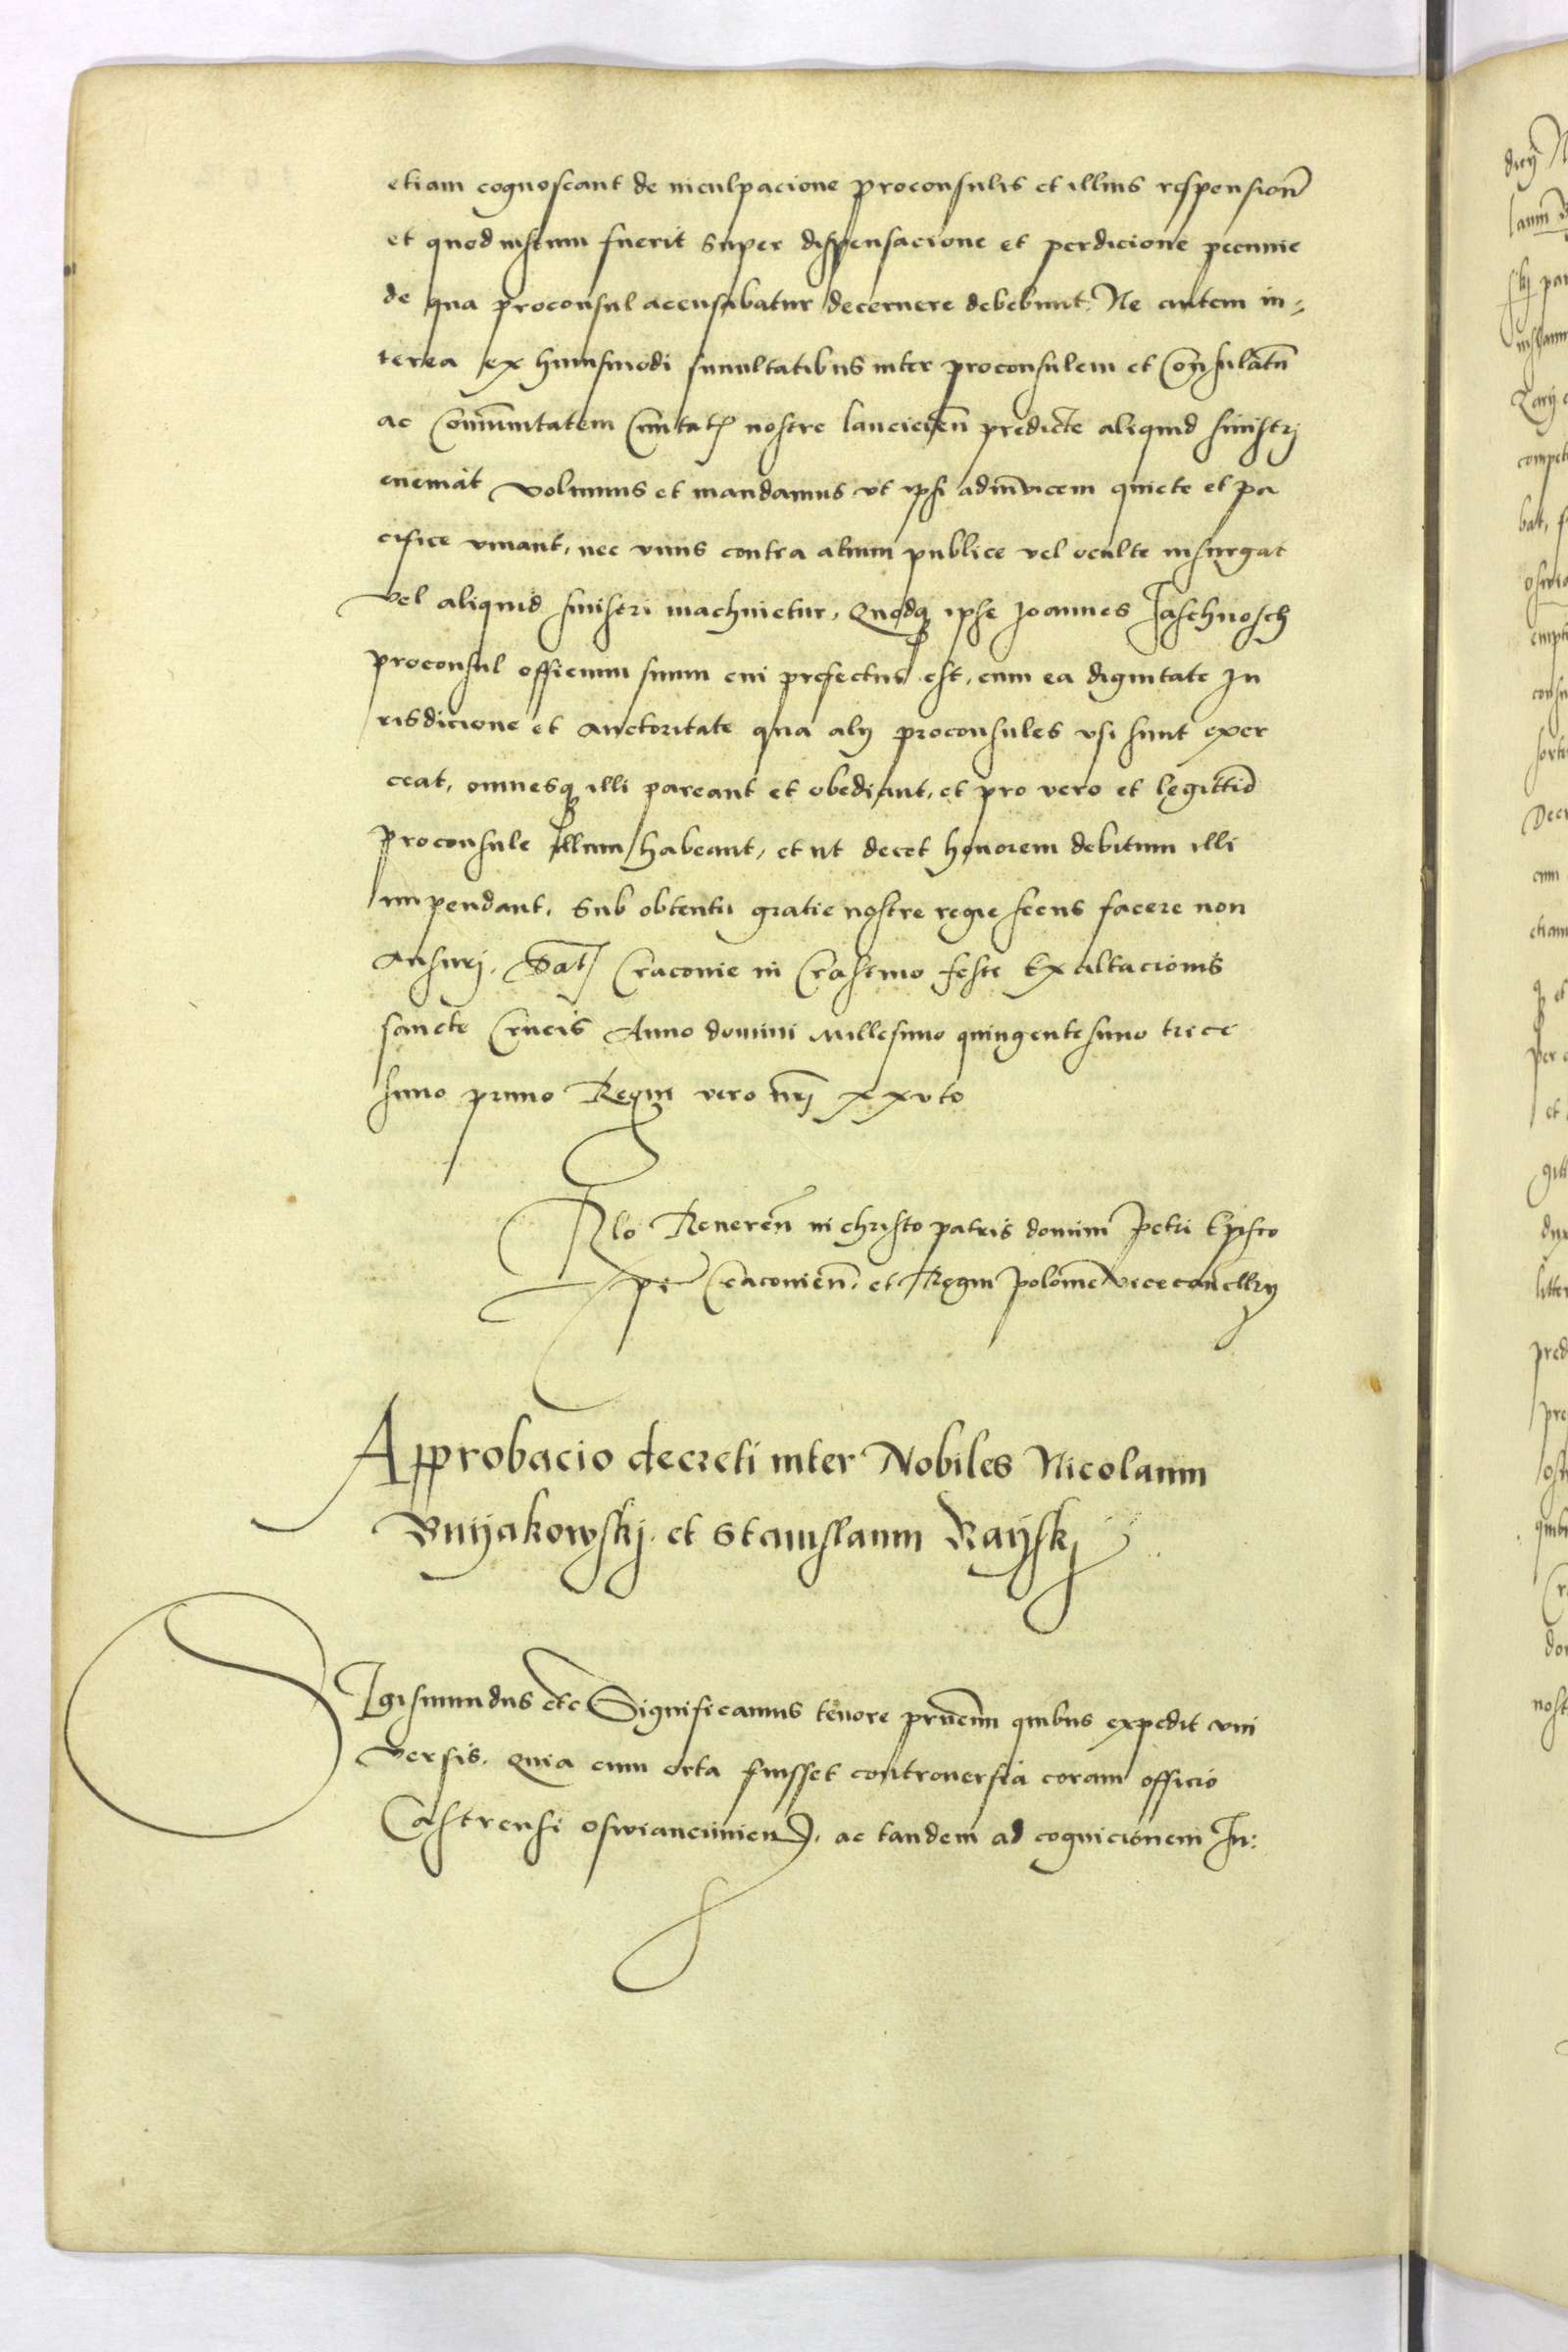 etiam cognoscant de inculpacione proconsulis et illius responsion̄
et quod iustum fuerit super dispensacione et perdicione pecunie
de qua proconsul accusabatur decernere debebunt. Ne autem in-
terea ex huiusmodi simultatibus inter proconsulem et Consulatū
ac Com̄unitatem Ciuitat̄ nostre lanciciēn predicte aliquid sinistrj
eueniat volumus et mandamus vt ipsi adinuicem quiete et pa
cifice viuant, nec vnus contra alium publice vel oculte insurgat
vel aliquid sinistri machinetur, Quodq ipse Joannes Jaschnosch
proconsul officium suum cui prefectus est, cum ea dignitate Ju
risdicione et auctoritate qua alij proconsules vsi sunt exer
ceat, omnesq illi pareant et obediant, et pro vero et legittimo
proconsule Illum habeant, et ut decet honorem debitum illi
impendant, Sub obtentu gratie nostre regie secus facere non
Ausurj. Dat̄ Cracouie in Crastino festi Exaltacionis
sancte Crucis Anno domini Millesimo quingentesimo trice
simo primo Regni vero nrj xxvto
Rlo Reuerēn in christo patris domini Petri Episco
pi Cracouien̄. et Regni polonie vicecancllrij
Approbacio decreti inter Nobiles Nicolaum
Bnijakowskj. et Stanislaum Rayskj
SIgismundus etc Significamus tenore prñcium quibus expedit vni
versis. Quia cum orta fuisset controuersia coram officio
Castrensi oswiancimien̄, ac tandem ad cognicionem Ju:
dicij
lanm